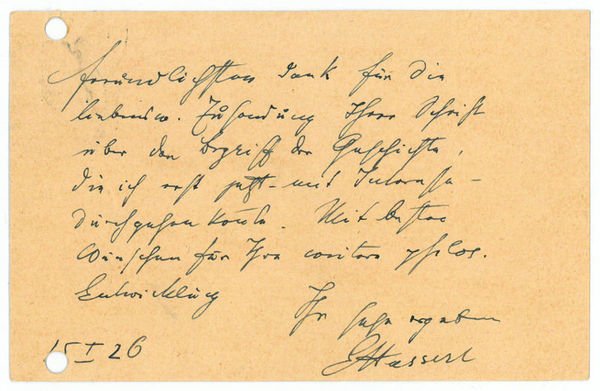 Freundlichsten Dank für die
liebensw. Zusendung Ihrer Schrift
über den Begriff der Geschichte,
die ich erst jetzt – mit Interesse –
durchgehen konnte. Mit besten
Wünschen für Ihre weitere philos.
Entwicklung
Ihr sehr ergebener
EHusserl
15 I 26